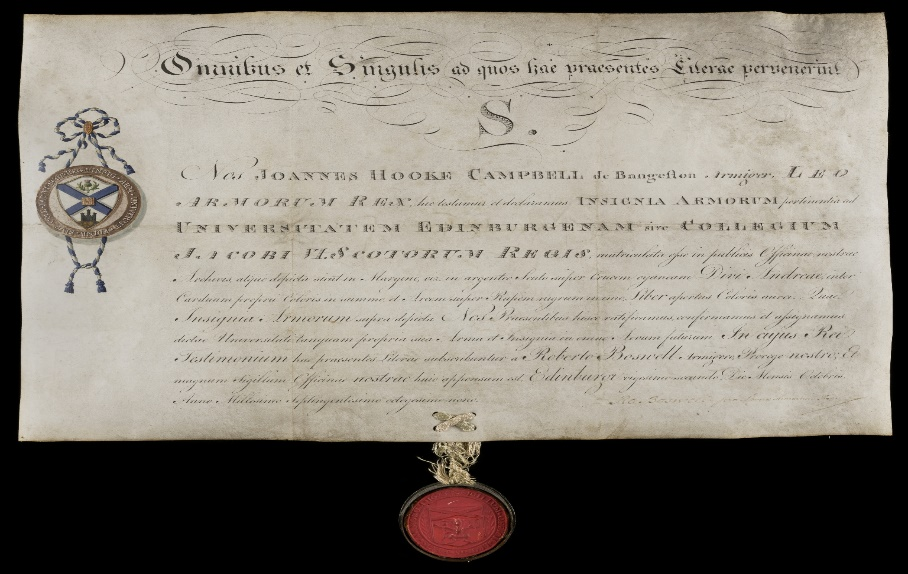 Omnibus et Singulis ad quos hae praesentes Literae pervenerint
S.
Nos JOANNES HOOKE CAMPBELL de Bangeston Armiger, LEO
ARMORUM REX, hoc testamur et declaramus INSIGNIA ARMORUM pertinentia ad
UNIVERSITATEM EDINBURGENAM sive COLLEGIUM
JACOBI VI. SCOTORUM REGIS matriculata esse in publicis Officinae nostrae
Archivis, atque depicta sicut in Margine, viz. in argenteo Scuto super Crucem cyaneam Divi Andreae, inter
Carduum proprii Coloris in summo et Arcem super Rupem nigram in imo, Liber apertus Coloris aurei. Quae
Insignia Armorum supra depicta Nos Praesentibus hisce ratificamus, confirmamus et assignamus
dictae Universitati tanquam propria sua Arma et Insignia in omne Aevum futurum In cujus Rei
Testimonium hae praesentes Literae subscribuntur a Roberto Boswell Armigero, Prorege nostro; Et
magnum Sigillum Officinae nostrae huic appensum ad Edinburgi vigesimo secundo Die Mensis Octobris
Anno Millesimo Septingentesimo octogesimo nono.
Ro. Boswell